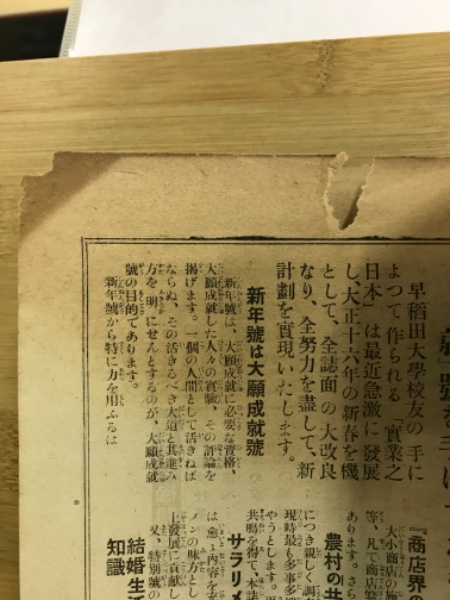 早稻田大學校友の手に
よつて作られる「實業之
日本」は最近急激に發展
し、大正十六年の新春を機
として、全誌面の大改良
なり、全努力を盡して、新
計劃を實現いたします。
新年號は大願成就號
新年號は、大願成就に必要な資格、
大願成就した人々の實驗、その評論を
揭げます。一個の人間として活きねば
ならぬ、その活きるべき大道と其進み
方を明にせんとするのが、大願成就
號の目的であります。
新年號から特に力を用ふるは
『商店界の
大小商店の
等、凡て商店
あります。さら
農村の共
につき親しく調
現時最も多事多
やうとします。
共鳴を得て、本誌
サラリメ
は愈々內容を
メンの味方とし
上發展に貢獻し
又、特別號の
結婚生活
知識